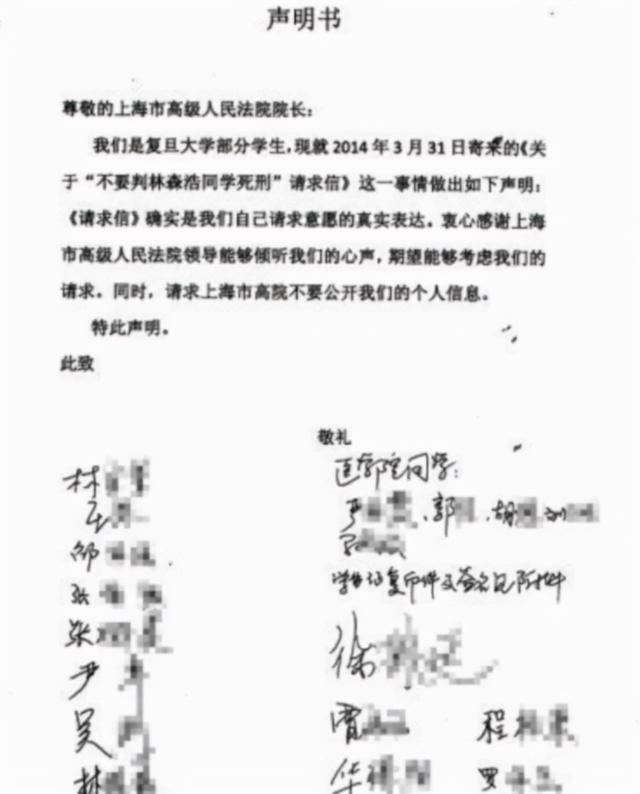 声明书
尊敬的上海市高级人民法院院长：
我们是复旦大学部分学生，现就 2014 年 3 月 31 日寄来的《关
于“不要判林森浩同学死刑”请求信》这一事情做出如下声明：
《请求信》确实是我们自己请求意愿的真实表达。衷心感谢上海
市高级人民法院领导能够倾听我们的心声，期望能够考虑我们的
请求。同时，请求上海市高院不要公开我们的个人信息。
特此声明。
此致
敬礼
林
邹
张
张
尹
吴
林
医学院同学：
严 、郭 、胡 刘
学生证复印件及签名见附件
徐
曹 程
华 罗